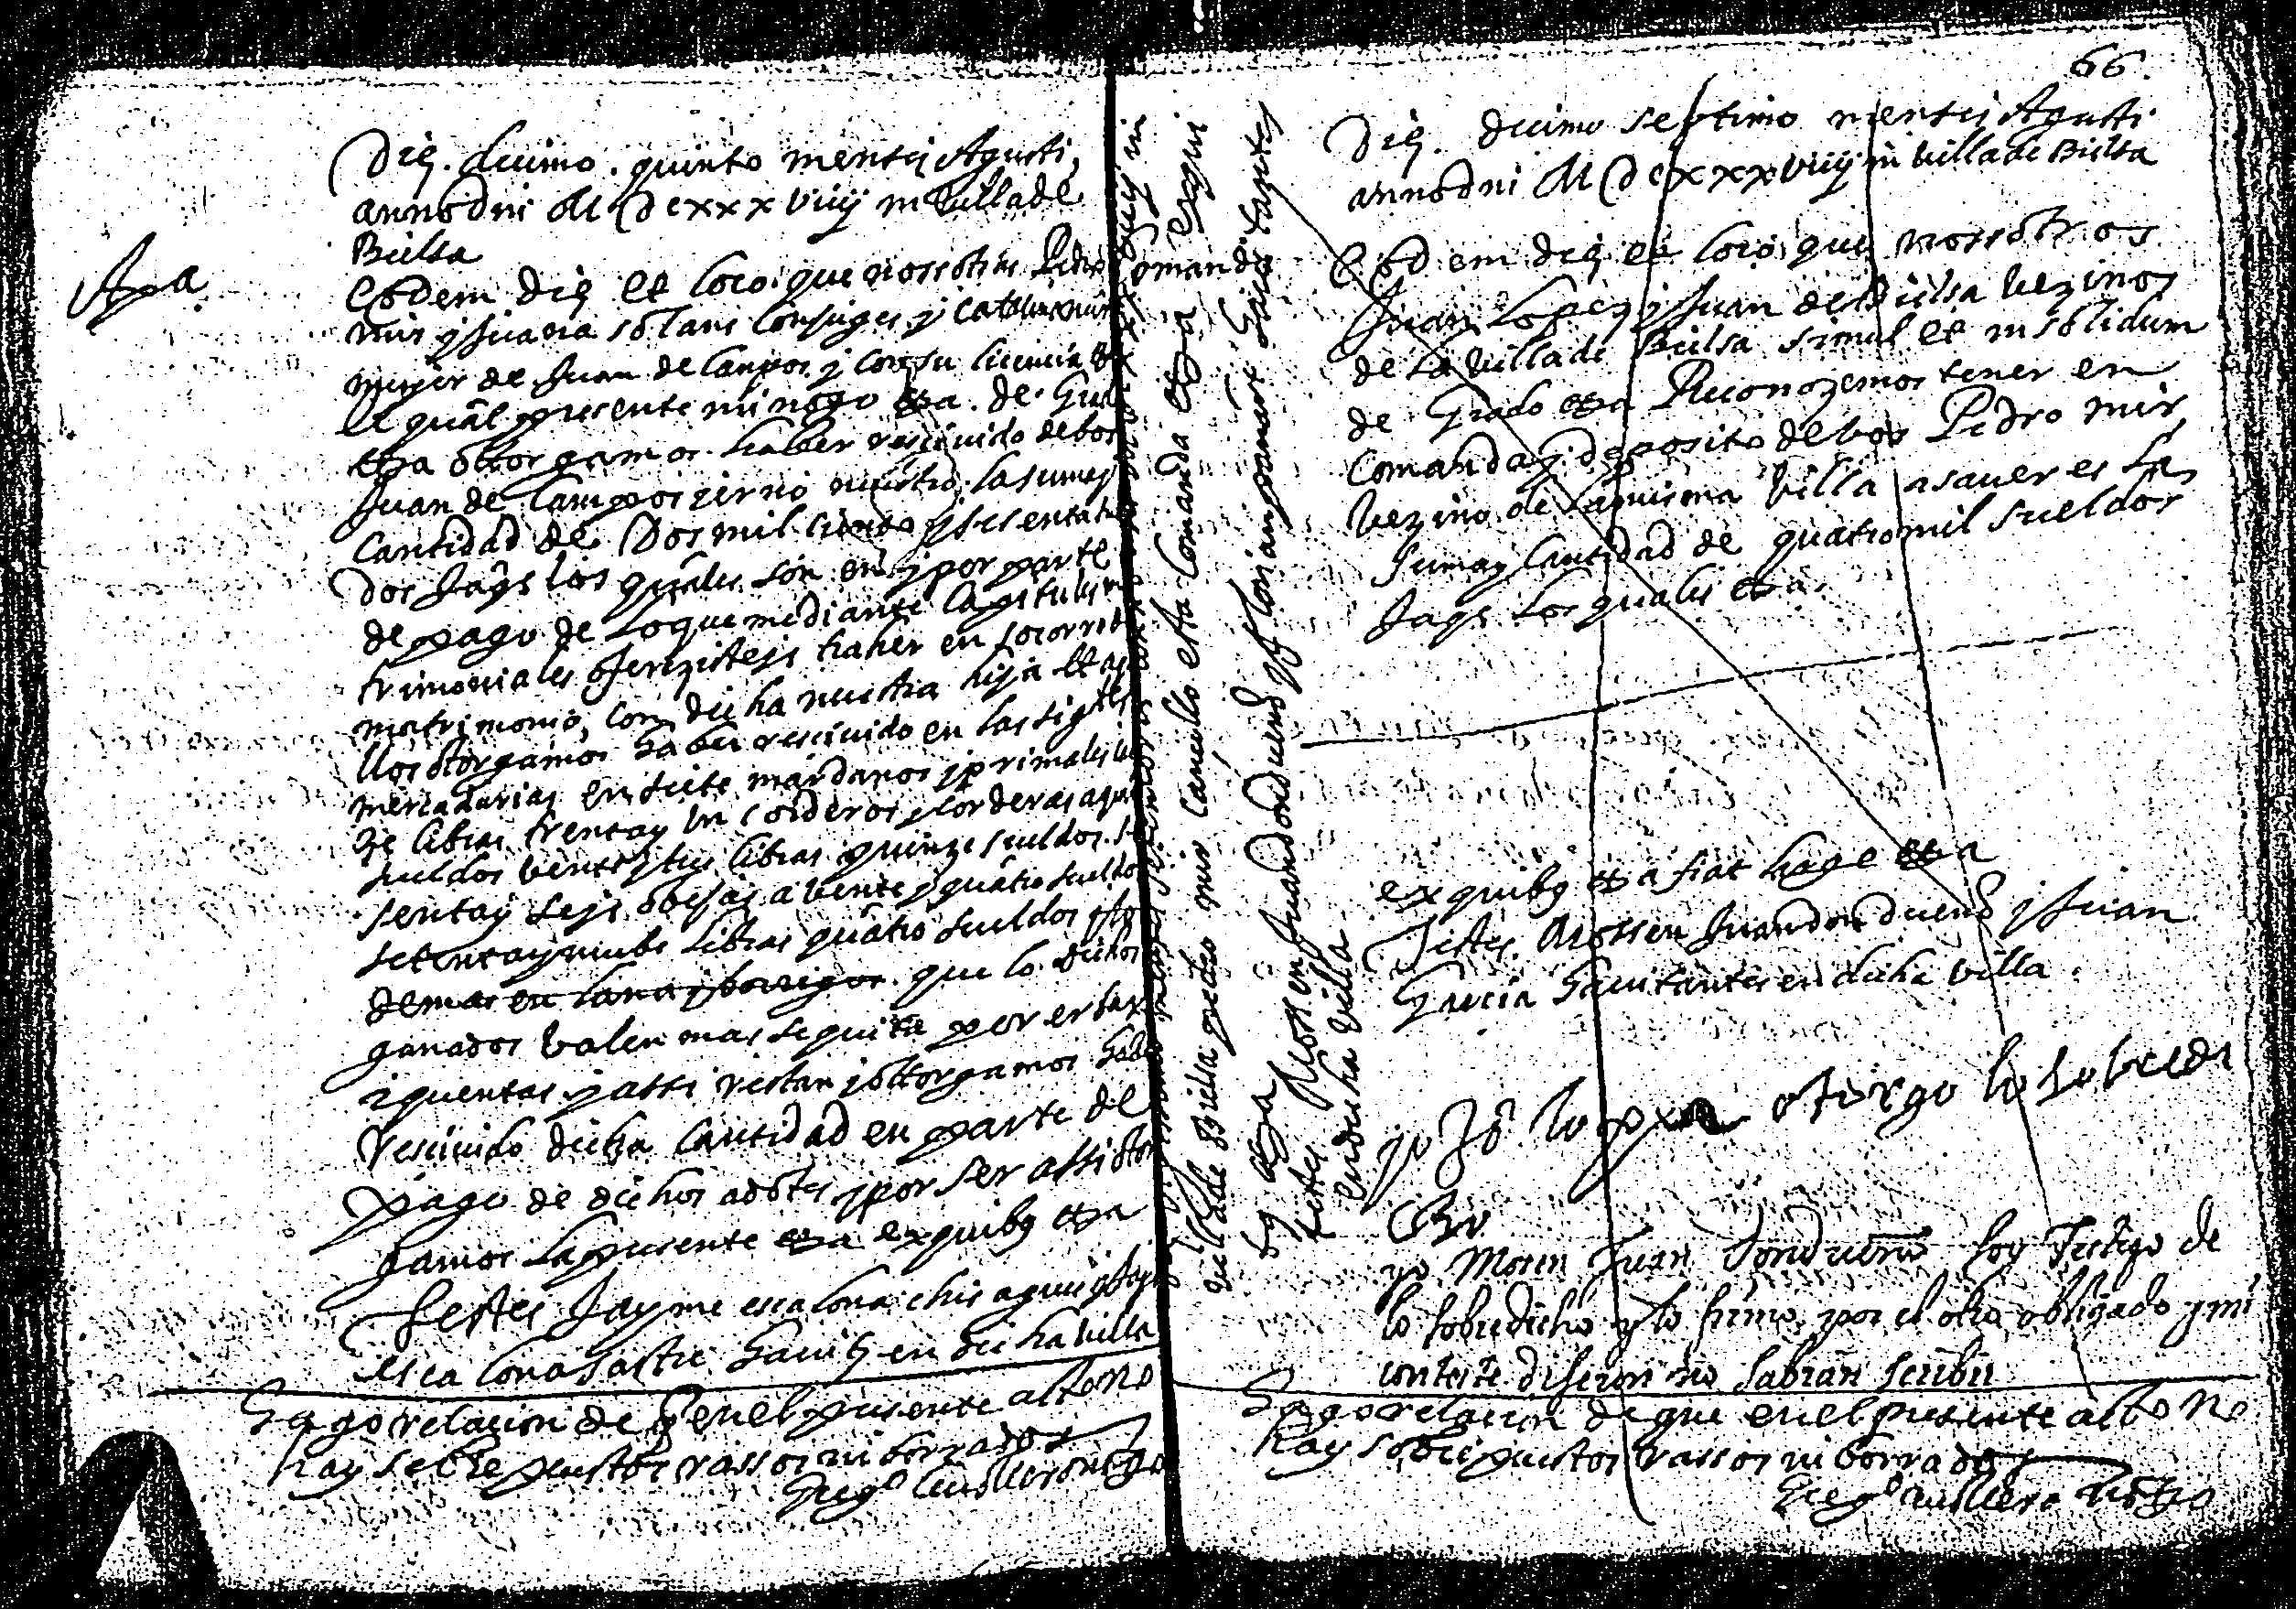 Die. decimo. quinto mensis Agusti
anno dni M dcxxxviiij in villa de
Bielsa
Apa
Eodem die et loco. que nosotros Pedro
mir y Juana solans conjuges y Catalina mir
mujer de Juan de Campos y con su licencia
el qual presente mi nogo etza. de Grado
etza otorgamos haber rescivido de bos
Juan de Campos yerno nuestro la suma y
Cantidad de Dos mil ciento y sesenta
dos Jaqs los quales son en y por parte
de pago de lo que mediante Capitules ma
trimoniales oferezisteys traher en socorro de
matrimonio, con dicha nuestra hija
llos otorgamos haber rescivido en las sigtes
mercadurias en siete mardanos y primales
ze libras trenta y un corderos y corderas a
sueldos bente y tres libras quinze sueldos se
senta y seys obejas a bente y quatro sueldos
setenta y nuebe libras quatro sueldos y lo
demas en lana y borregos. que lo dichos
ganados balen mas se quita por er
zquentas y assi restan y otorgamos haber
rescivido dicha Cantidad en parte de
pago de dichos adotes y por ser assi otor
gamos la presente etza ex quibus etza
Testes Jayme escalona
escalona sastre havites en dicha villa
Hago relacion de q en el presente acto no
hay sobrepuestos rassos ni borrados
Greg.º Cavallero nogo
Comanda
de Bielsa Pedro mir Cancello esta Comanda etza ex qui
bg etza
testes Mossen Juan don dueno y Florian pomar havitantes
en dicha villa
66
Die. decimo septimo mensis Agusti
anno dni M dcxxxviiij in villa de Bielsa
Eodem die et loco que nosotros
Juan Lopez y Juan de Bielsa vezinos
de la villa de Bielsa simul et in solidum
de Grado etza Reconozemos tener en
Comanda y deposito de bos Pedro mir
vezino de la misma villa asaver es la
suma y Cantidad de quatro mil sueldos
Jaqs los quales etza.
ex quibg etza fiat large etza
Testes Mossen Juan don dueno y Juan
Garcia havitantes en dicha villa
yo Jº lopez otorgo lo sobredi
cho
yo Mosen Juan Dondueno soy Testigo de
lo sobredicho y lo firmo por el otro obligado y mi
conteste dijeron no sabian scribir
Hago relacion de que en el presente acto no
hay sobrepuestos rassos ni borrados
Greg.º Cavallero notro